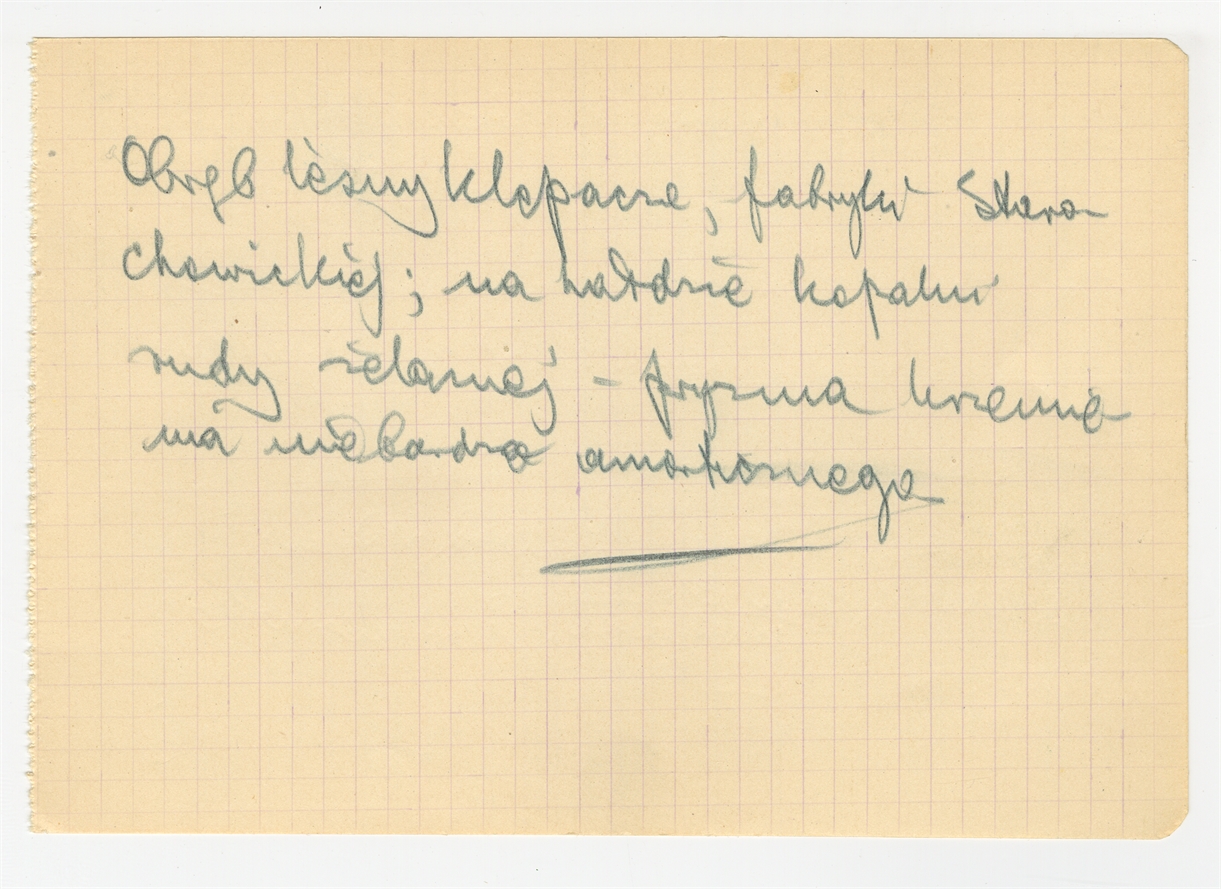 Obręb leśny Klepacze, fabryki Stara-
chowickiej; na hałdzie kopalni
rudy żelaznej – pryzma krzemie
nia niebardzo amorficznego